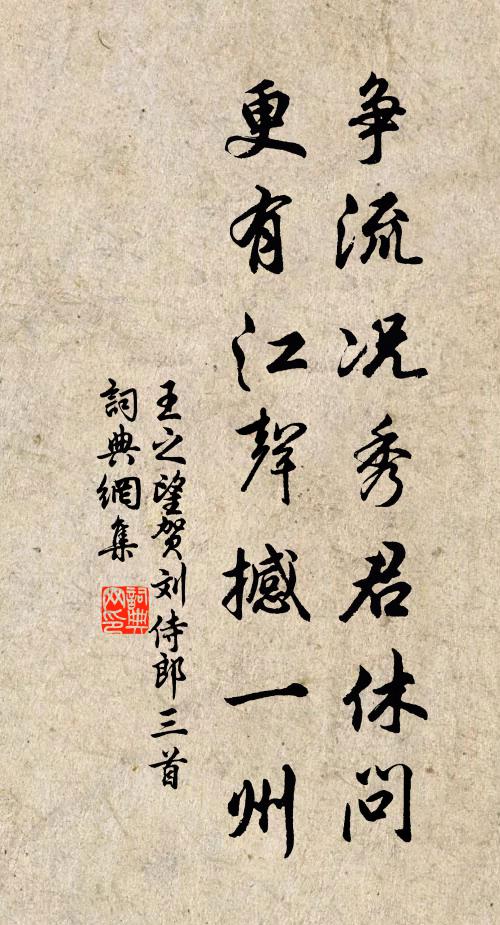 争流况秀君休问
更有江聲撼一州
王之望贺刘侍郎三首
詞典網集
詞典网印